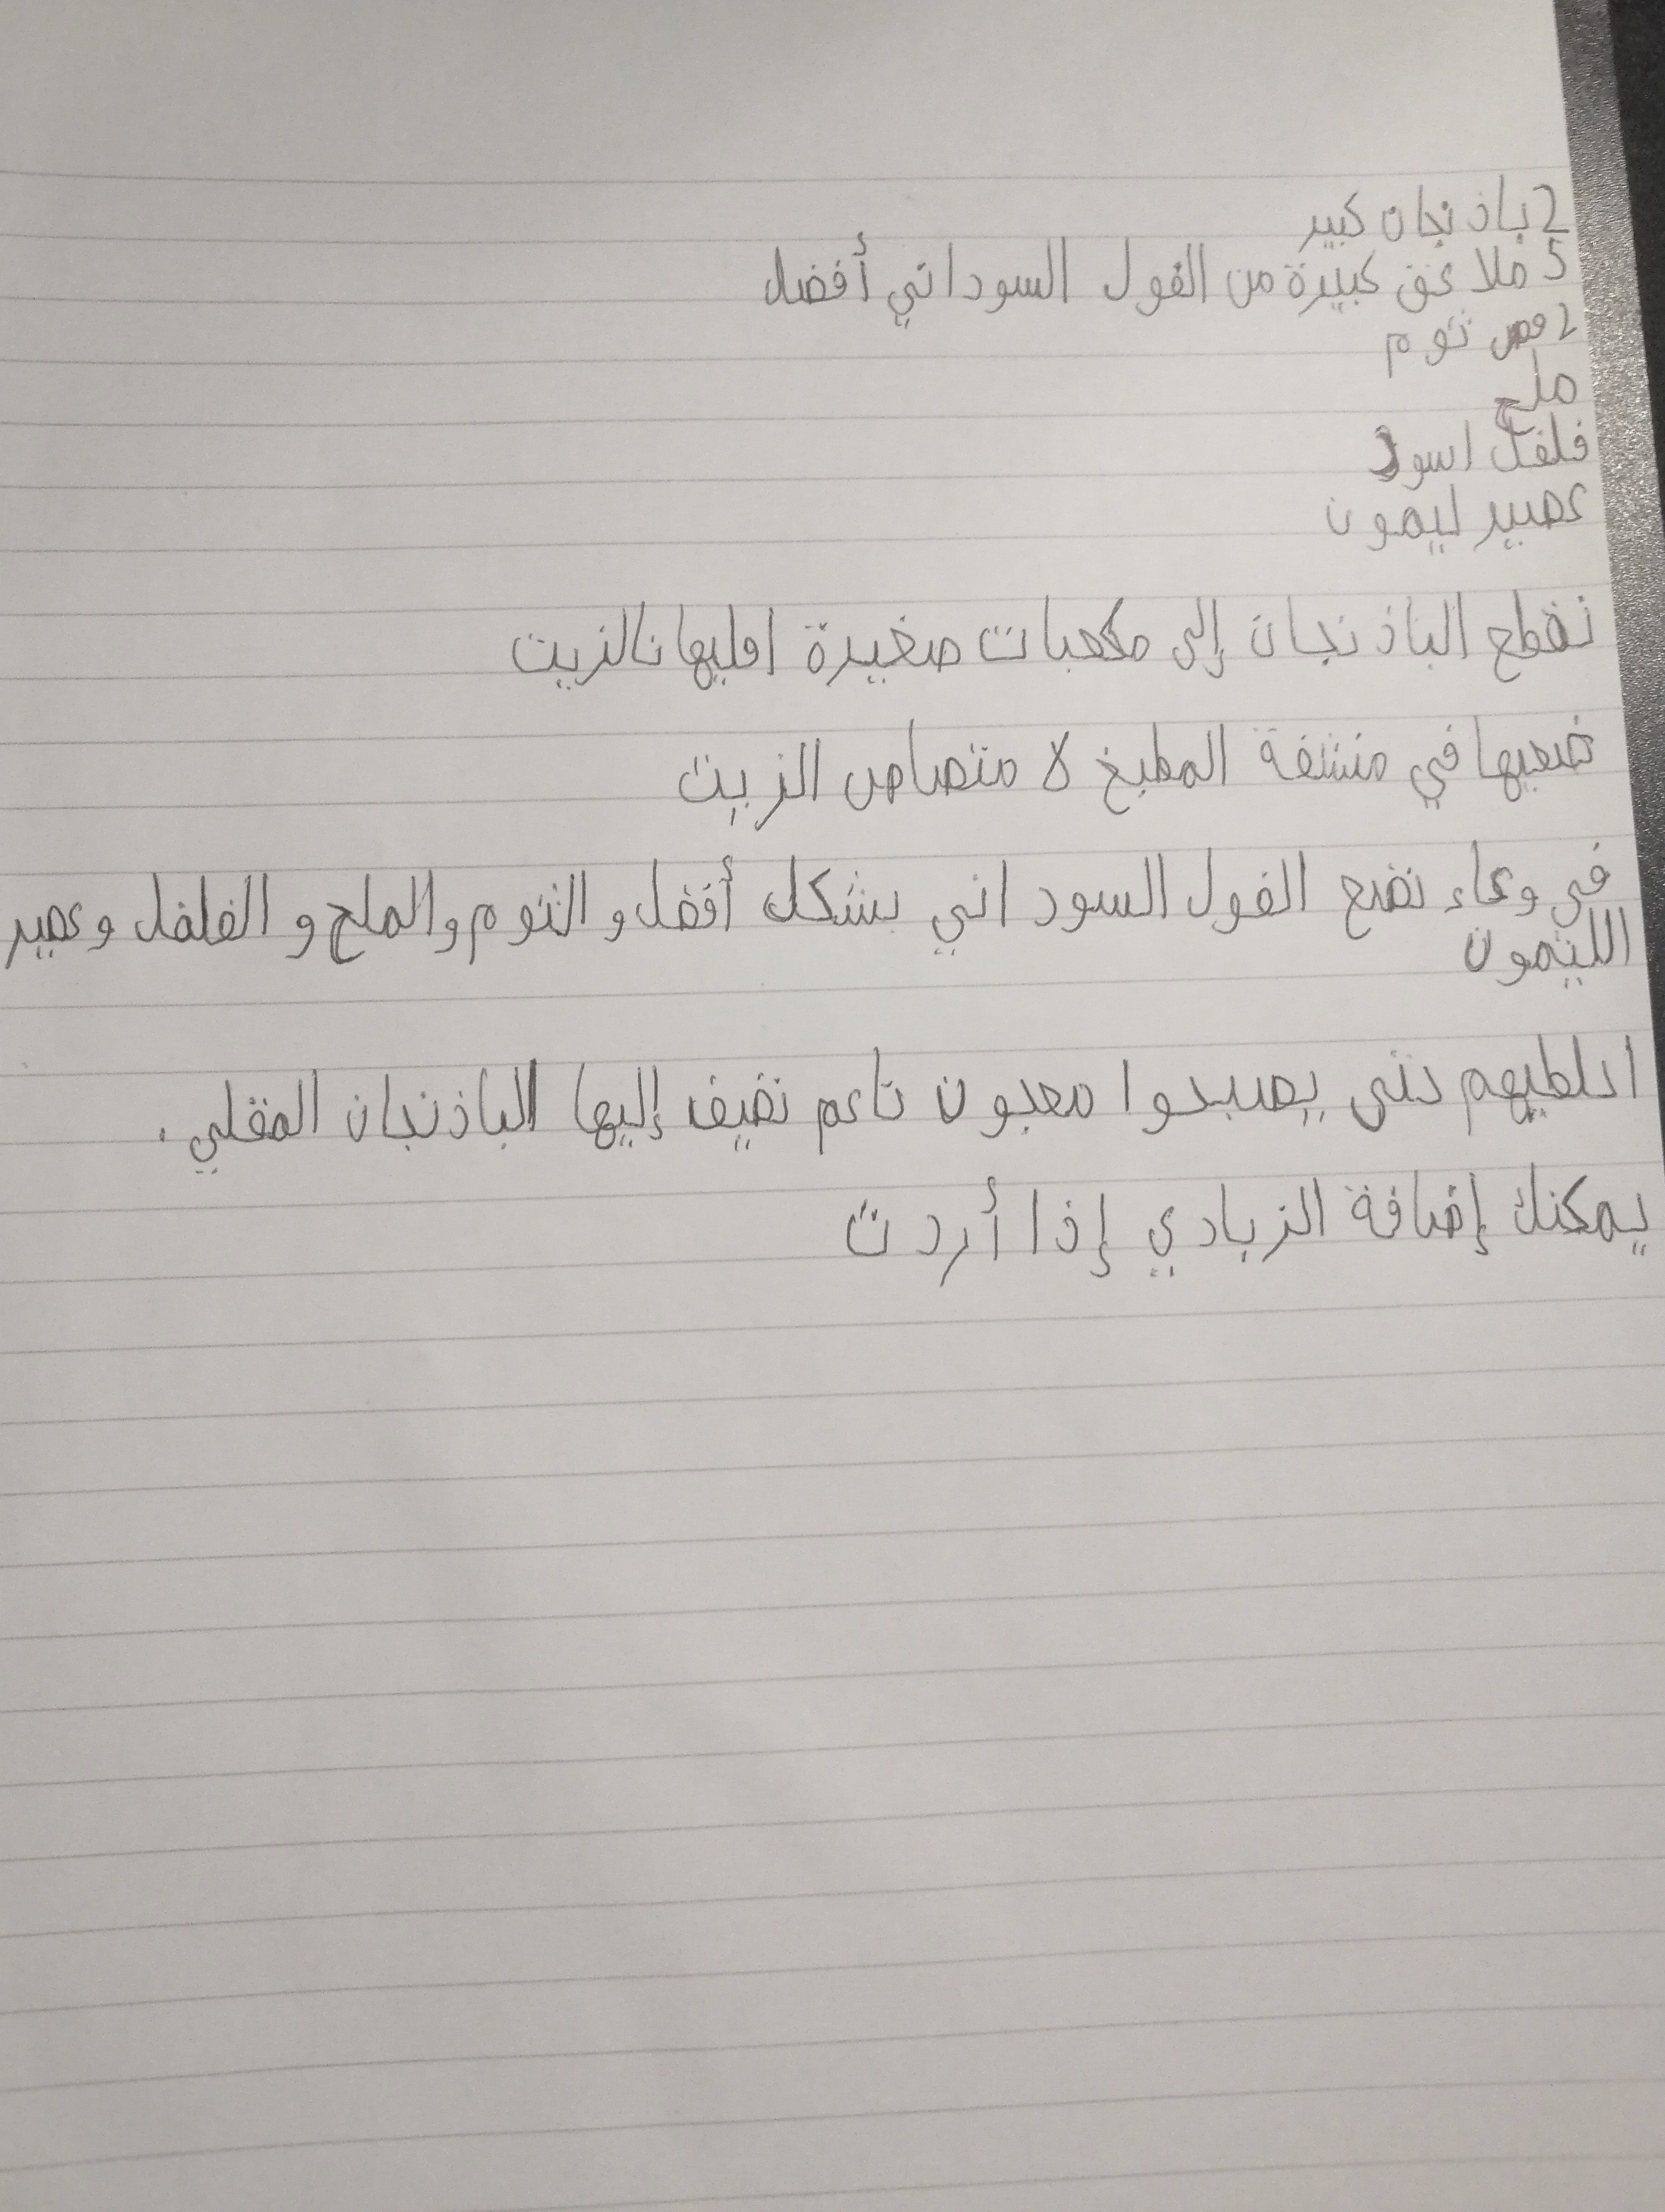 2 باذنجان كبير
5 ملاعق كبيرة من الفول السوداني أفضل
2 فص ثوم
ملح
فلفل اسود
عصير ليمون
نقطع الباذنجان إلى مكعبات صغيرة اقليها بالزيت
ضعيها في منشفة المطبخ لامتصاص الزيت
في وعاء نضع الفول السوداني بشكل أفضل و الثوم والملح و الفلفل وعصير
الليمون
اخلطيهم حتى يصبحوا معجون ناعم نضيف إليها الباذنجان المقلي.
يمكنك إضافة الزبادي إذا أردت